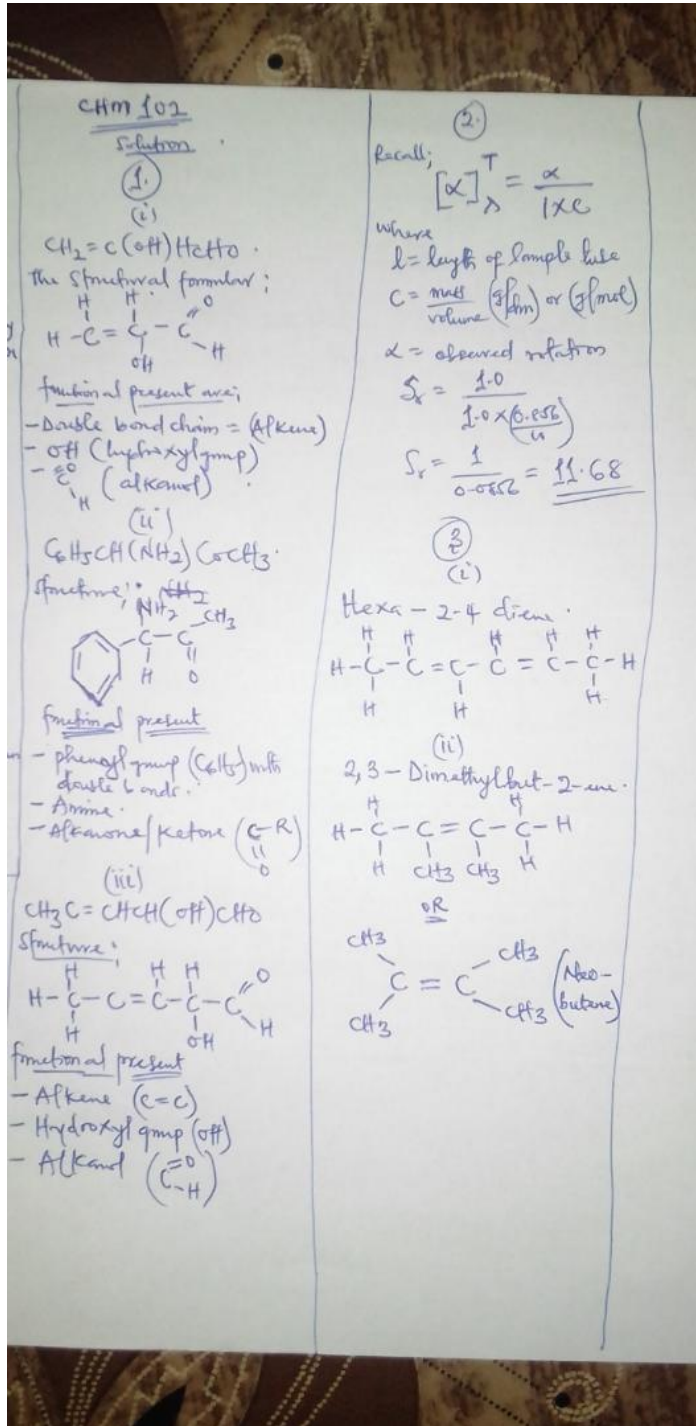 CHM 102
Solution
1.
(i)
CH2=C(OH)HCHO.
The Structural formular;
H H O
H-C=C-C
OH H
functional present are;
-Double bond chain = (Alkene)
- OH (hydroxyl group)
- C=O H (alkanol)
(ii)
C6H5CH(NH2)COCH3.
Structure;
NH2 CH3
C-C
H O
functional present
- phenyl group (C6H5) with
double bonds.
- Amine.
- Alkanone/Ketone (C-R)
O
(iii)
CH3C=CHCH(OH)CHO
Structure;
H H H O
H-C-C=C-C-C
H OH H
functional present
- Alkene (C=C)
- Hydroxyl group (OH)
- Alkanol (C=O -H)
2.
Recall;
[α]Tλ = α / l×c
where
l = length of sample tube
C = mass/volume (g/dm) or (g/mol)
α = observed rotation
Sr = 1.0 / 1.0×(0.856/10)
Sr = 1 / 0.0856 = 11.68
3
(i)
Hexa-2-4 diene.
H H H H H
H-C-C=C-C=C-C-H
H H H
(ii)
2,3-Dimethylbut-2-ene.
H H
H-C-C=C-C-H
H CH3 CH3 H
OR
CH3 CH3
C=C (Neo-
CH3 CH3 butene)